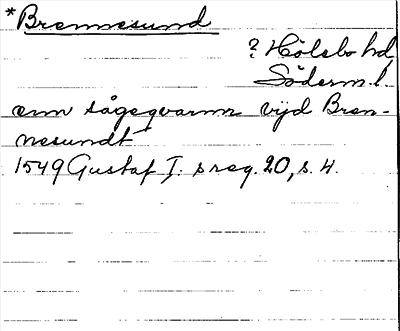 *Brennesund
? Hölebo hd,
Söderm. l.
enn sågeqvarnn vijd Bren-
nesundt
1549 Gustaf I. s reg. 20, s. 4.